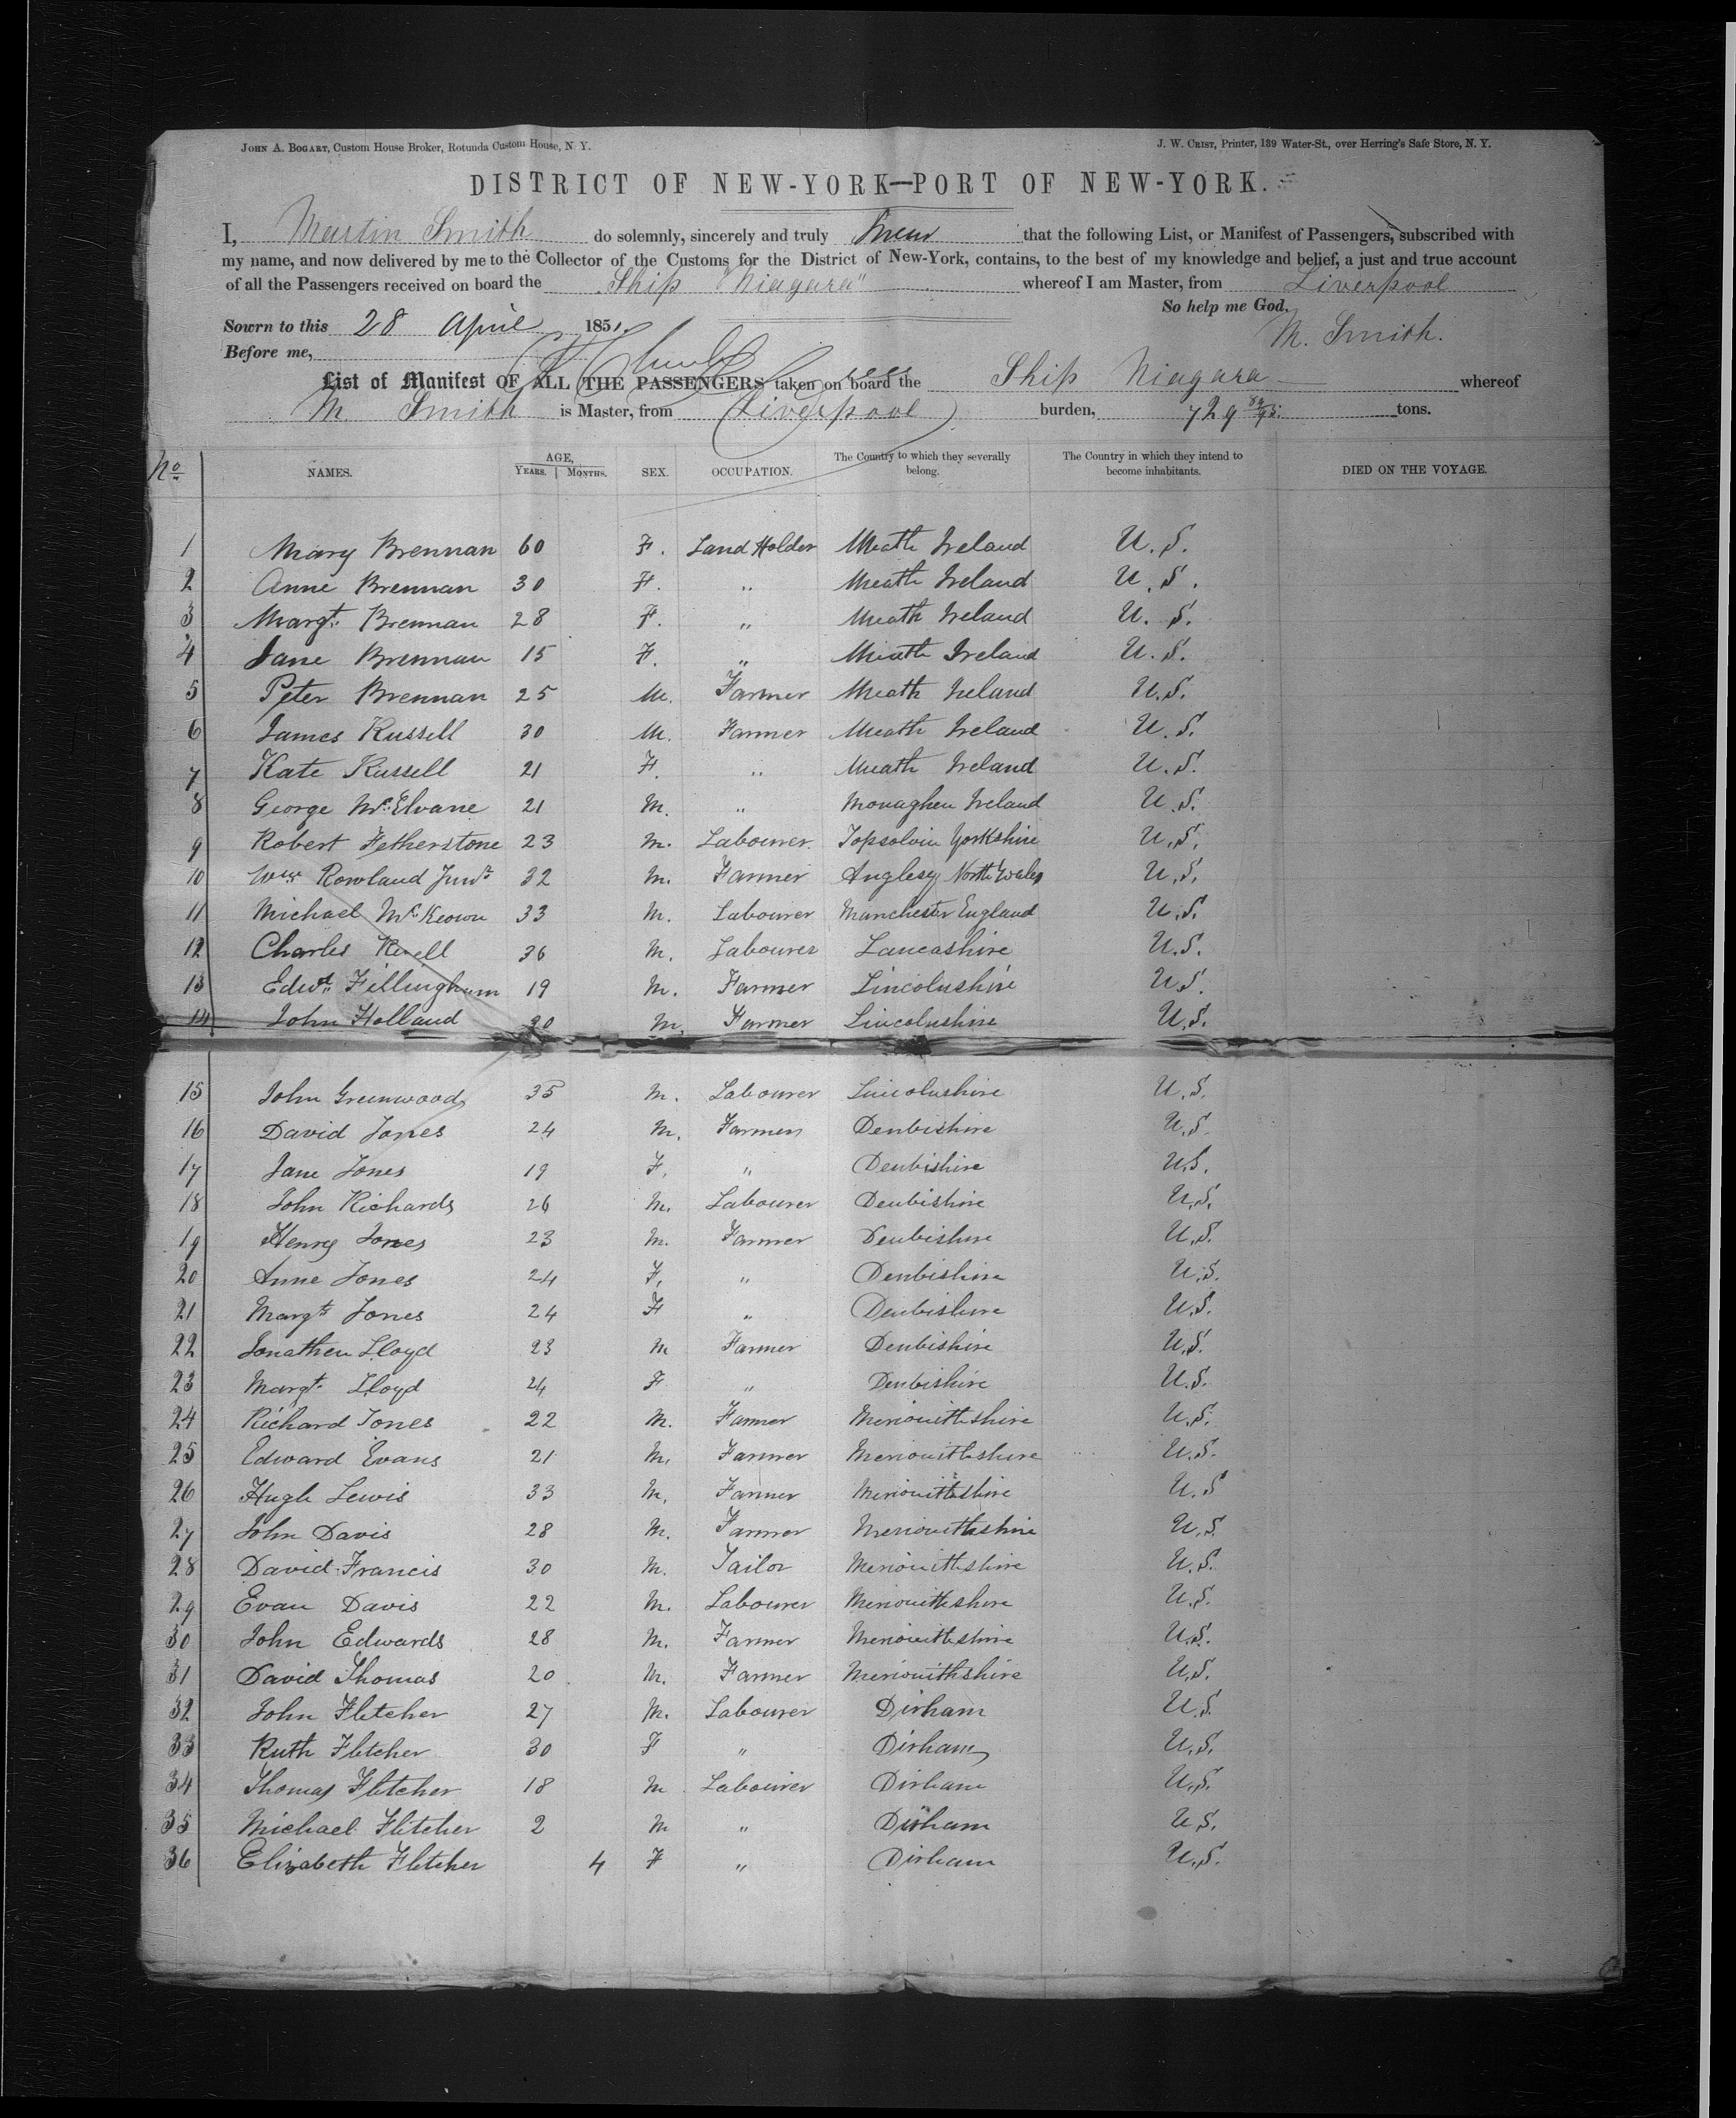 JOHN A. BOGART, Custom House Broker, Rotunda Custom House, N. Y. J. W. CRIST, Printer, 139 Water-St., over Herring's Safe Store, N. Y.
DISTRICT OF NEW-YORK—PORT OF NEW-YORK.
I, Martin Smith do solemnly, sincerely and truly Swear that the following List, or Manifest of Passengers, subscribed with
my name, and now delivered by me to the Collector of the Customs for the District of New-York, contains, to the best of my knowledge and belief, a just and true account
of all the Passengers received on board the Ship "Niagara" whereof I am Master, from Liverpool
So help me God.
Sowrn to this 28 April 1851. M. Smith.
Before me,
List of Manifest OF ALL THE PASSENGERS taken on board the Ship Niagara whereof
M. Smith is Master, from Liverpool burden, 729 tons.
No NAMES. AGE, YEARS. MONTHS. SEX. OCCUPATION. The Country to which they severally belong. The Country in which they intend to become inhabitants. DIED ON THE VOYAGE.
1 Mary Brennan 60 F. Land Holder Meath Ireland U.S.
2 Anne Brennan 30 F. " Meath Ireland U.S.
3 Margt. Brennan 28 F. " Meath Ireland U.S.
4 Jane Brennan 15 F. " Meath Ireland U.S.
5 Peter Brennan 25 M. Farmer Meath Ireland U.S.
6 James Russell 30 M. Farmer Meath Ireland U.S.
7 Kate Russell 21 F. " Meath Ireland U.S.
8 George McElvane 21 M. " Monaghen Ireland U.S.
9 Robert Fetherstone 23 M. Labourer Yorkshire U.S.
10 Wm Rowland 32 M. Farmer Anglesy North Wales U.S.
11 Michael McKeown 33 M. Labourer Manchester England U.S.
12 Charles 36 M. Labourer Lancashire U.S.
13 Edwd. Fillingham 19 M. Farmer Lincolnshire U.S.
14 John Holland 30 M. Farmer Lincolnshire U.S.
15 John Greenwood 35 M. Labourer Lincolnshire U.S.
16 David Jones 24 M. Farmer Denbishire U.S.
17 Jane Jones 19 F. " Denbishire U.S.
18 John Richards 26 M. Labourer Denbishire U.S.
19 Henry Jones 23 M. Farmer Denbishire U.S.
20 Anne Jones 24 F. " Denbishire U.S.
21 Margt Jones 24 F " Denbishire U.S.
22 Jonathen Lloyd 23 M Farmer Denbishire U.S.
23 Margt. Lloyd 24 F " Denbishire U.S.
24 Richard Jones 22 M. Farmer Merionithshire U.S.
25 Edward Evans 21 M. Farmer Merionithshire U.S.
26 Hugh Lewis 33 M. Farmer Merionithshire U.S
27 John Davis 28 M. Farmer Merionithshire U.S.
28 David Francis 30 M. Tailor Merionithshire U.S.
29 Evan Davis 22 M. Labourer Merionithshire U.S.
30 John Edwards 28 M. Farmer Merionithshire U.S.
31 David Thomas 20 M. Farmer Merionithshire U.S.
32 John Fletcher 27 M. Labourer Dirham U.S.
33 Ruth Fletcher 30 F " Dirham U.S.
34 Thomas Fletcher 18 M Labourer Dirham U.S.
35 Michael Fletcher 2 M " Dirham U.S.
36 Elizabeth Fletcher 4 F " Dirham U.S.